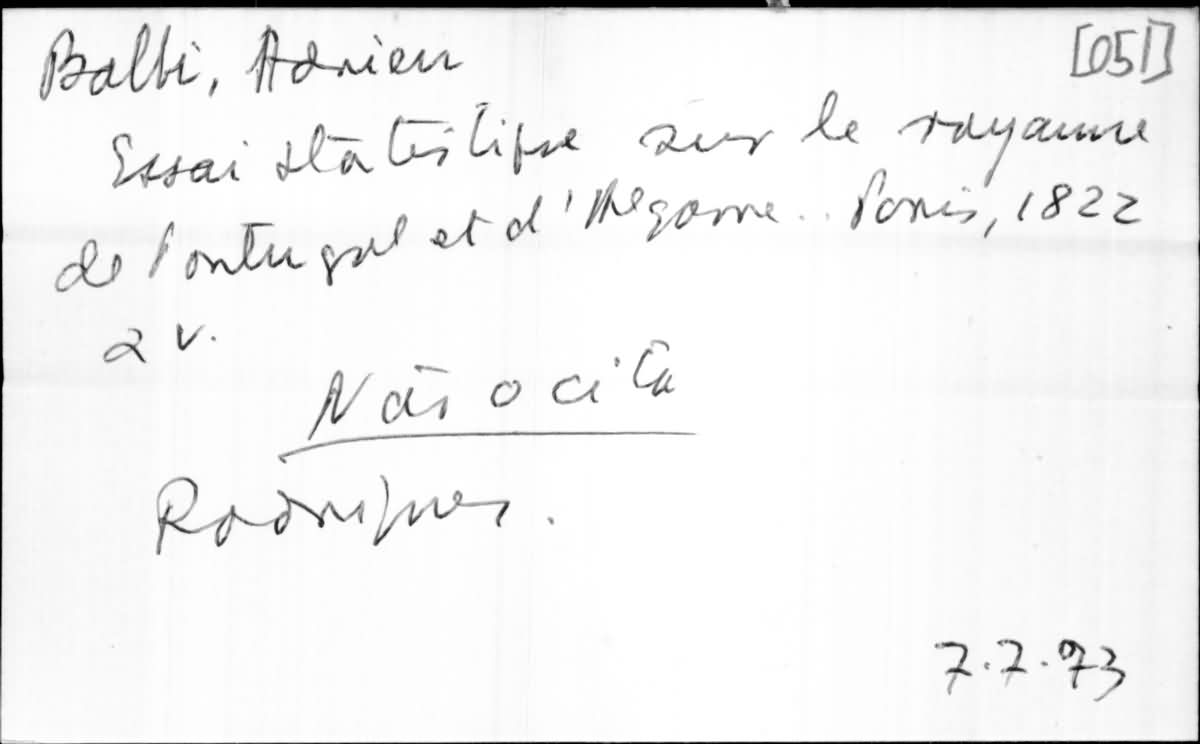 Balbi, Adrien [051]
Essai statistique sur le royaume
de Portugal et d'Algarve.. Paris, 1822
2 v.
Não o cita
Rodrigues.
7.7.93